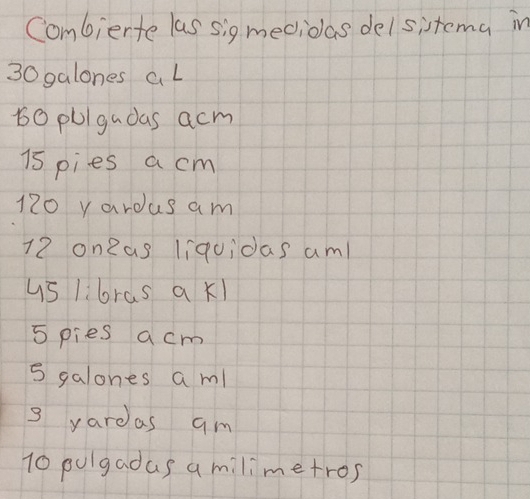 Combierte las sig medidas del sistema in
30 galones a L
60 pulgadas a cm
15 pies a cm
120 yardas a m
12 onzas liquidas a ml
45 libras a kl
5 pies a cm
5 galones a ml
3 yardas a m
10 pulgadas a milimetros